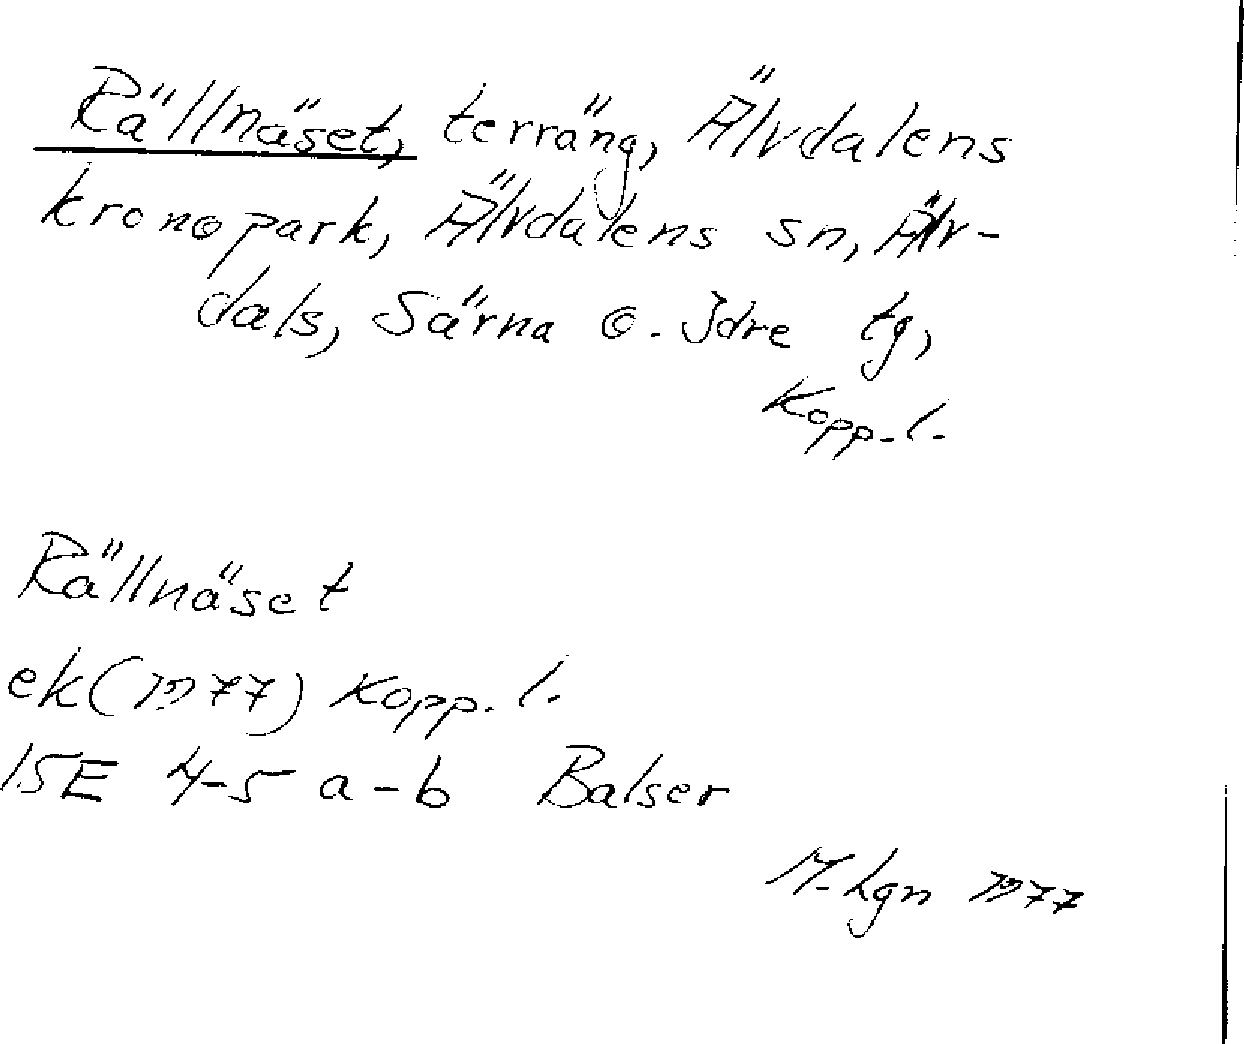 Rällnäset, terräng, Älvdalens
kronopark, Älvdalens sn, Älv-
dals, Särna o. Idre tg,
Kopp. l.
Rällnäset
ek (1977) Kopp. l.
15E 4-5 a-b Balser
M. Lgn 1977